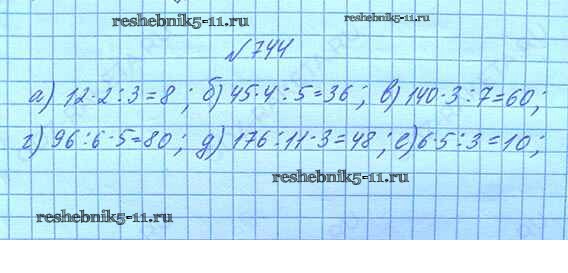 reshebnik5-11.ru reshebnik5-11.ru
№744
а) 12·2:3=8; б) 45·4:5=36; в) 140·3:7=60;
г) 96:6·5=80; д) 176:11·3=48; е) 6·5:3=10;
reshebnik5-11.ru
reshebnik5-11.ru